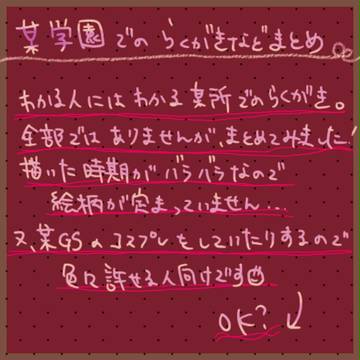 某学園でのらくがきなどまとめ
わかる人にはわかる某所でのらくがき。
全部ではありませんが、まとめてみました!
描いた時期がバラバラなので
絵柄が定まっていません…
又、某GSのコスプレをしていたりするので
色々許せる人向けです
OK?